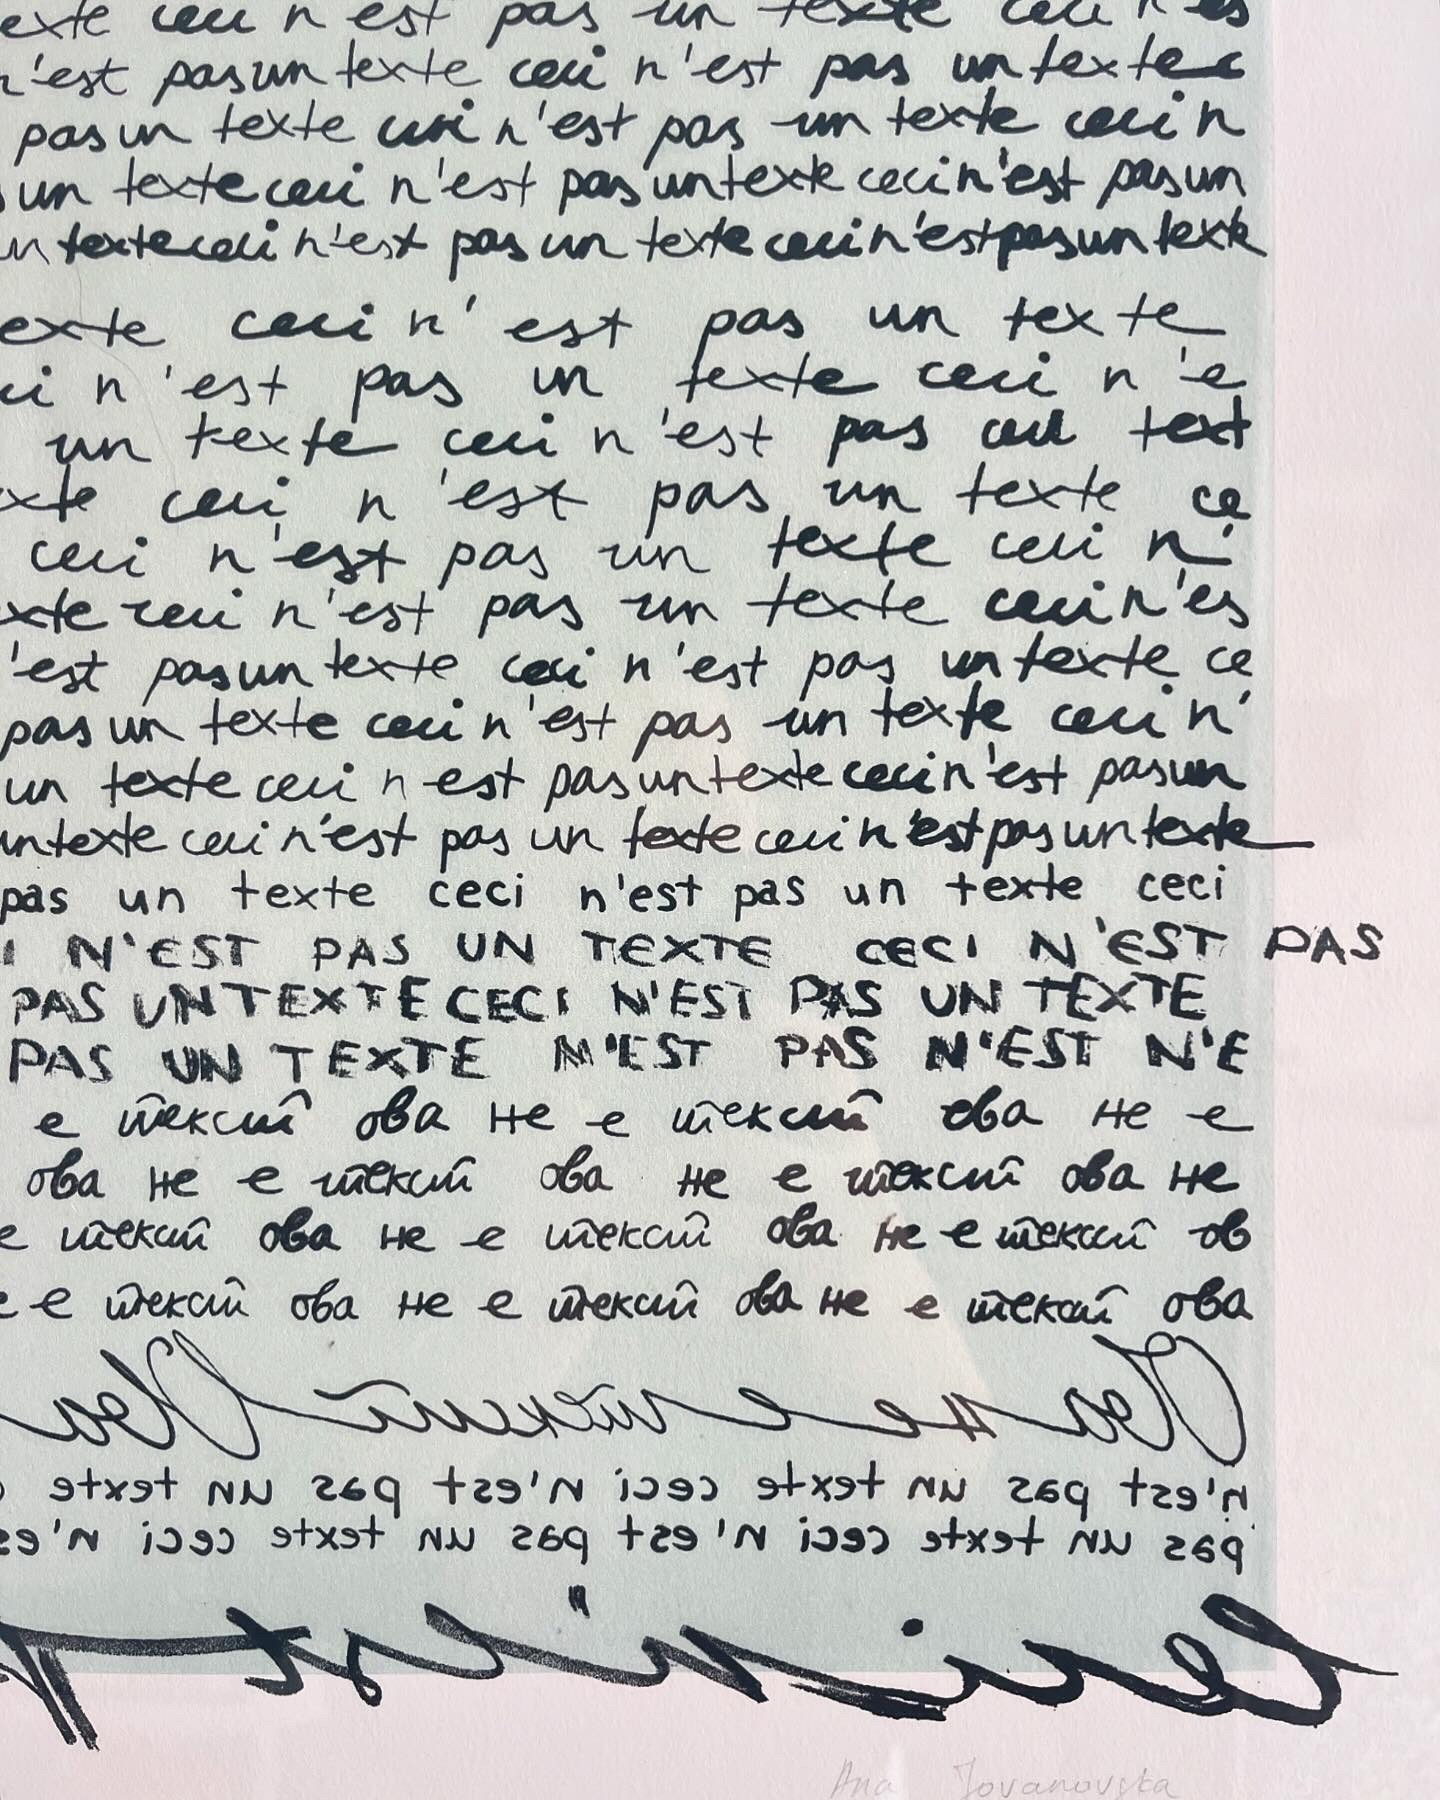 exte ceci n'est pas un texte ceci n'es
n'est pas un texte ceci n'est pas un texte c
pas un texte ceci n'est pas un texte ceci n
un texte ceci n'est pas un texte ceci n'est pas un
un texte ceci n'est pas un texte ceci n'est pas un texte
exte ceci n'est pas un texte
ci n'est pas un texte ceci n'e
un texte ceci n'est pas text
xte ceci n'est pas un texte ce
ceci n'est pas un texte ceci n'
xte ceci n'est pas un texte ceci n'es
'est pas un texte ceci n'est pas un texte ce
pas un texte ceci n'est pas un texte ceci n'
un texte ceci n est pas un texte ceci n'est pas un
un texte ceci n'est pas un texte ceci n'est pas un texte
pas un texte ceci n'est pas un texte ceci
I N'EST PAS UN TEXTE CECI N'EST PAS
PAS UN TEXTE CECI N'EST PAS UN TEXTE
PAS UN TEXTE N'EST PAS N'EST N'E
е текст ова не е текст ова не е
ова не е текст ова не е текст ова не
е текст ова не е текст ова не е текст ов
е е текст ова не е текст ова не е текст ова
Ова не е текст Ова
n'est pas un texte ceci n'est pas un texte c
pas un texte ceci n'est pas un texte ceci n'es
Ceci n'est p
Ana Jovanovska